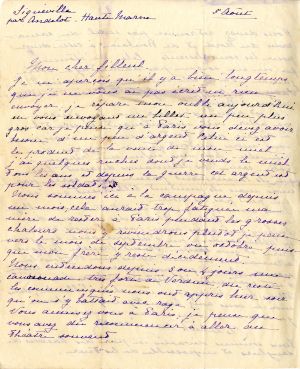 Signéville
par Andelot - Haute Marne
5 Août
Mon cher filleul
Je m'aperçois qu'il y a bien longtemps
que je ne vous ai pas écrit ni rien
envoyé. Je répare mon oubli aujourd'hui
en vous envoyant un billet un peu plus
gros car je pense qu'à Paris vous devez avoir
besoin de plus d'argent. Celui ci est
le produit de la vente de mon miel
J'ai quelques ruches dont je vends le miel
tous les ans et depuis la guerre cet argent est
pour les soldats.
Nous sommes ici à la campagne depuis
un mois, cela aurait trop fatigué ma
mère de rester à Paris pendant les grosses
chaleurs nous reviendrons plutôt je crois
vers le mois de septembre ou octobre puis
que mon frère y reste décidément.
Nous entendons depuis 3 ou 4 jours une
canonnade très forte de Verdun du reste
les communiqués nous ont appris hier soir
qu'on s'y battait avec rage
Vous amusez vous à Paris, je pense que
vous avez dû recommencer à aller au
théâtre souvent